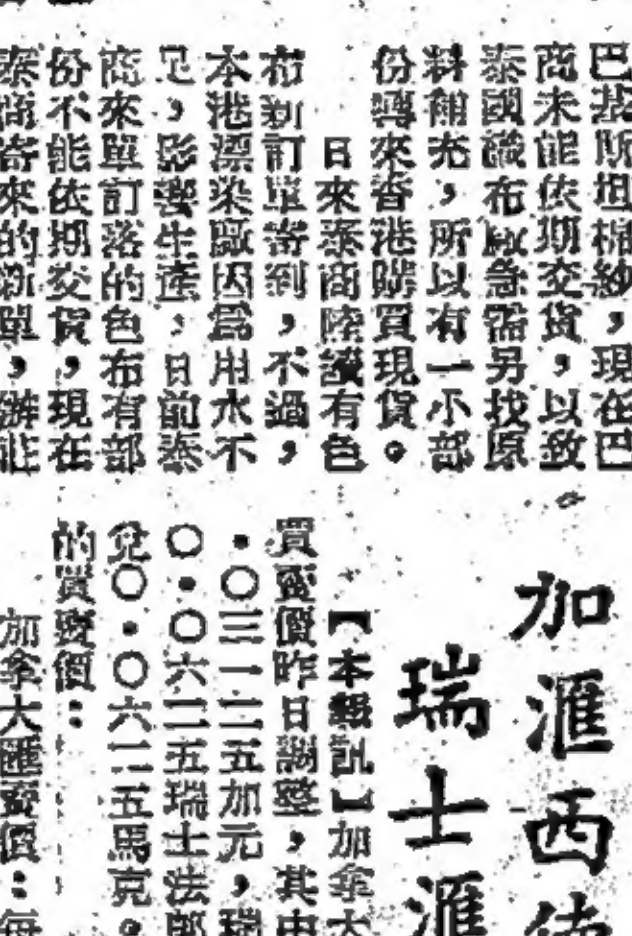 巴基斯坦棉紗，現在巴
商未能依期交貨，以致
泰國織布廠急需另找原
料補充，所以有一小部
份轉來香港購買現貨。
日來泰商陸續有色
布新訂單寄到，不過，
本港漂染廠因為用水不
足，影響生產，日前泰
商來單訂落的色布有部
份不能依期交貨，現在
泰商寄來的新單，
加滙西德
瑞士滙
【本報訊】加拿大
買賣價昨日調整，其中
・〇三一二五加元，瑞
〇・〇六二五瑞士法郎
兌〇・〇六二五馬克。
的買賣價：
加拿大匯賣價：每